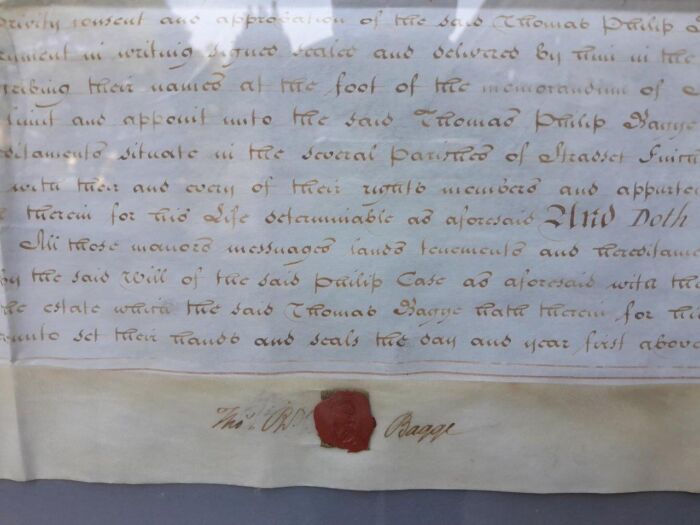 privity consent and approbation of the said Thomas Philip
cument in writing signed sealed and delivered by him in the
cribing their names at the foot of the memorandum of
limit and appoint unto the said Thomas Philip Bagge
ditaments situate in the several parishes of Strasset Finch
with their and every of their rights members and apparte
therein for his Life determinable as aforesaid And Doth
All those manors messuages lands tenements and hereditame
by the said Will of the said Philip Case as aforesaid with the
the estate which the said Thomas Bagge hath therein for his
reunto set their hands and seals the day and year first above
Thos. Bagge